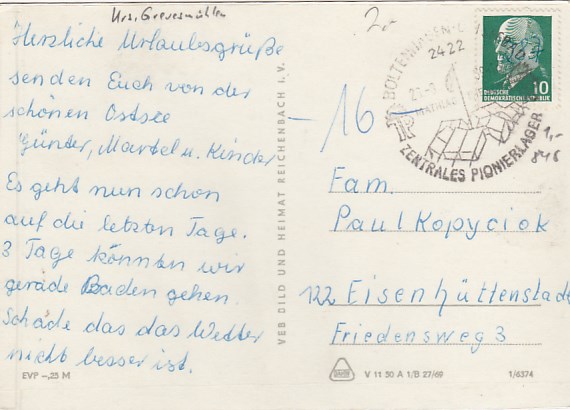 Krs. Grevesmühlen
Herzliche Urlaubsgrüße
senden Euch von der
schönen Ostsee
Günter, Martel u. Kinder
Es geht nun schon
auf die letzten Tage.
3 Tage könnten wir
gerade Baden gehen.
Schade das das Wetter
nicht besser ist.
EVP -,25 M
VEB BILD UND HEIMAT REICHENBACH I. V.
2,-
BOLTENHAGEN
2422
ZENTRALES PIONIERLAGER
DEUTSCHE
DEMOKRATISCHE REPUBLIK
10
1,-
846
- 16 -
Fam.
Paul Kopyciok
122 Eisenhüttenstadt
Friedensweg 3
V 11 50 A 1/B 27/69
1/6374